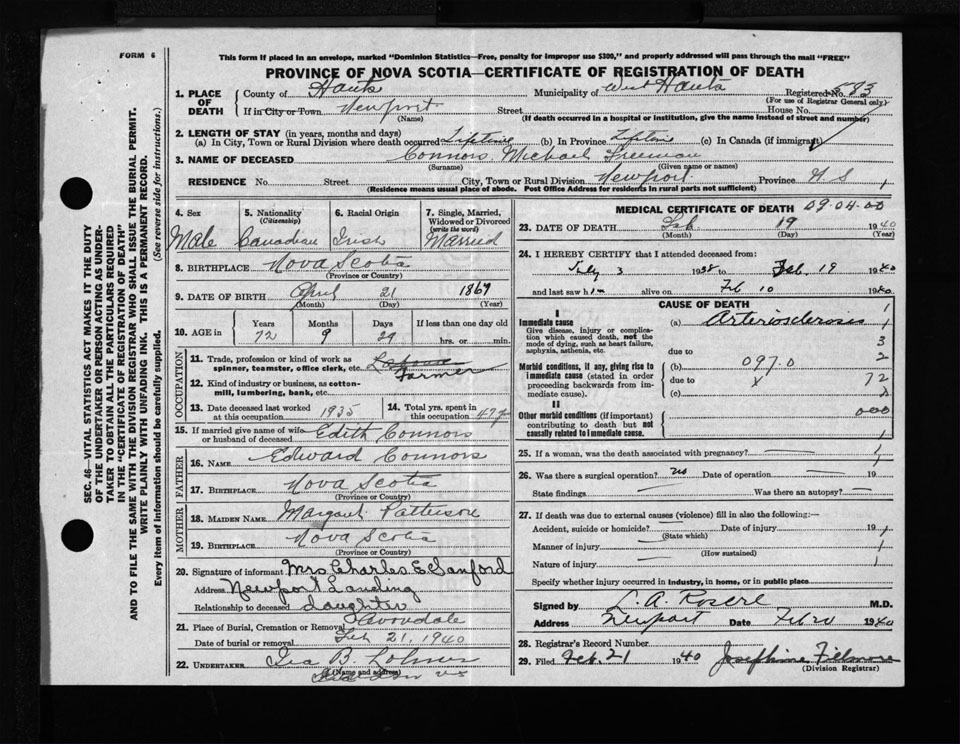 FORM 6
This form if placed in an envelope, marked "Dominion Statistics—Free, penalty for improper use $300," and properly addressed will pass through the mail "FREE"
PROVINCE OF NOVA SCOTIA—CERTIFICATE OF REGISTRATION OF DEATH
1. PLACE OF DEATH County of Hants Municipality of West Hants Registered No. 583
(For use of Registrar General only)
If in City or Town Newport Street House No.
(Name) (If death occurred in a hospital or institution, give the name instead of street and number)
2. LENGTH OF STAY (in years, months and days)
(a) In City, Town or Rural Division where death occurred Lifetime (b) In Province Lifetime (c) In Canada (if immigrant)
3. NAME OF DECEASED Connors Michael Freeman
(Surname) (Given name or names)
RESIDENCE No. Street City, Town or Rural Division Newport Province N.S
(Residence means usual place of abode. Post Office Address for residents in rural parts not sufficient)
4. Sex 5. Nationality (Citizenship) 6. Racial Origin 7. Single, Married, Widowed or Divorced (write the word)
Male Canadian Irish Married
8. BIRTHPLACE Nova Scotia
(Province or Country)
9. DATE OF BIRTH April 21 1867
(Month) (Day) (Year)
10. AGE in Years Months Days If less than one day old
72 9 29 hrs. or min.
OCCUPATION
11. Trade, profession or kind of work as spinner, teamster, office clerk, etc. Farmer
12. Kind of industry or business, as cotton-mill, lumbering, bank, etc.
13. Date deceased last worked at this occupation 1935 14. Total yrs. spent in this occupation 47
15. If married give name of wife or husband of deceased Edith Connors
FATHER
16. NAME Edward Connors
17. BIRTHPLACE Nova Scotia
(Province or Country)
MOTHER
18. MAIDEN NAME Margaret Patterson
19. BIRTHPLACE Nova Scotia
(Province or Country)
20. Signature of informant Mrs Charles E Sanford
Address Newport Landing
Relationship to deceased daughter
21. Place of Burial, Cremation or Removal Avondale
Date of burial or removal Feb 21, 1940
22. UNDERTAKER Ira B.
(Name and address)
MEDICAL CERTIFICATE OF DEATH 09.04.00
23. DATE OF DEATH Feb 19 1940
(Month) (Day) (Year)
24. I HEREBY CERTIFY that I attended deceased from:
July 3 1938 to Feb. 19 1940
and last saw him alive on Feb 10 1940
CAUSE OF DEATH
I
Immediate cause (a) Arteriosclerosis
Give disease, injury or complication which caused death, not the mode of dying, such as heart failure, asphyxia, asthenia, etc.
due to
Morbid conditions, if any, giving rise to immediate cause (stated in order proceeding backwards from immediate cause). (b) 097.0
due to
(c)
1
3
2
72
000
II
Other morbid conditions (if important) contributing to death but not causally related to immediate cause.
25. If a woman, was the death associated with pregnancy?
26. Was there a surgical operation? no Date of operation
State findings Was there an autopsy?
27. If death was due to external causes (violence) fill in also the following:—
Accident, suicide or homicide? Date of injury 19
(State which)
Manner of injury
(How sustained)
Nature of injury
Specify whether injury occurred in industry, in home, or in public place
Signed by L. A. M.D.
Address Newport Date Feb 20 1940
28. Registrar's Record Number
29. Filed Feb. 21 1940 Josephine Fillmore
(Division Registrar)
SEC. 46—VITAL STATISTICS ACT MAKES IT THE DUTY
OF THE UNDERTAKER OR PERSON ACTING AS UNDER-
TAKER TO OBTAIN ALL THE PARTICULARS REQUIRED
IN THE "CERTIFICATE OF REGISTRATION OF DEATH"
AND TO FILE THE SAME WITH THE DIVISION REGISTRAR WHO SHALL ISSUE THE BURIAL PERMIT.
WRITE PLAINLY WITH UNFADING INK. THIS IS A PERMANENT RECORD.
Every item of information should be carefully supplied. (See reverse side for instructions.)